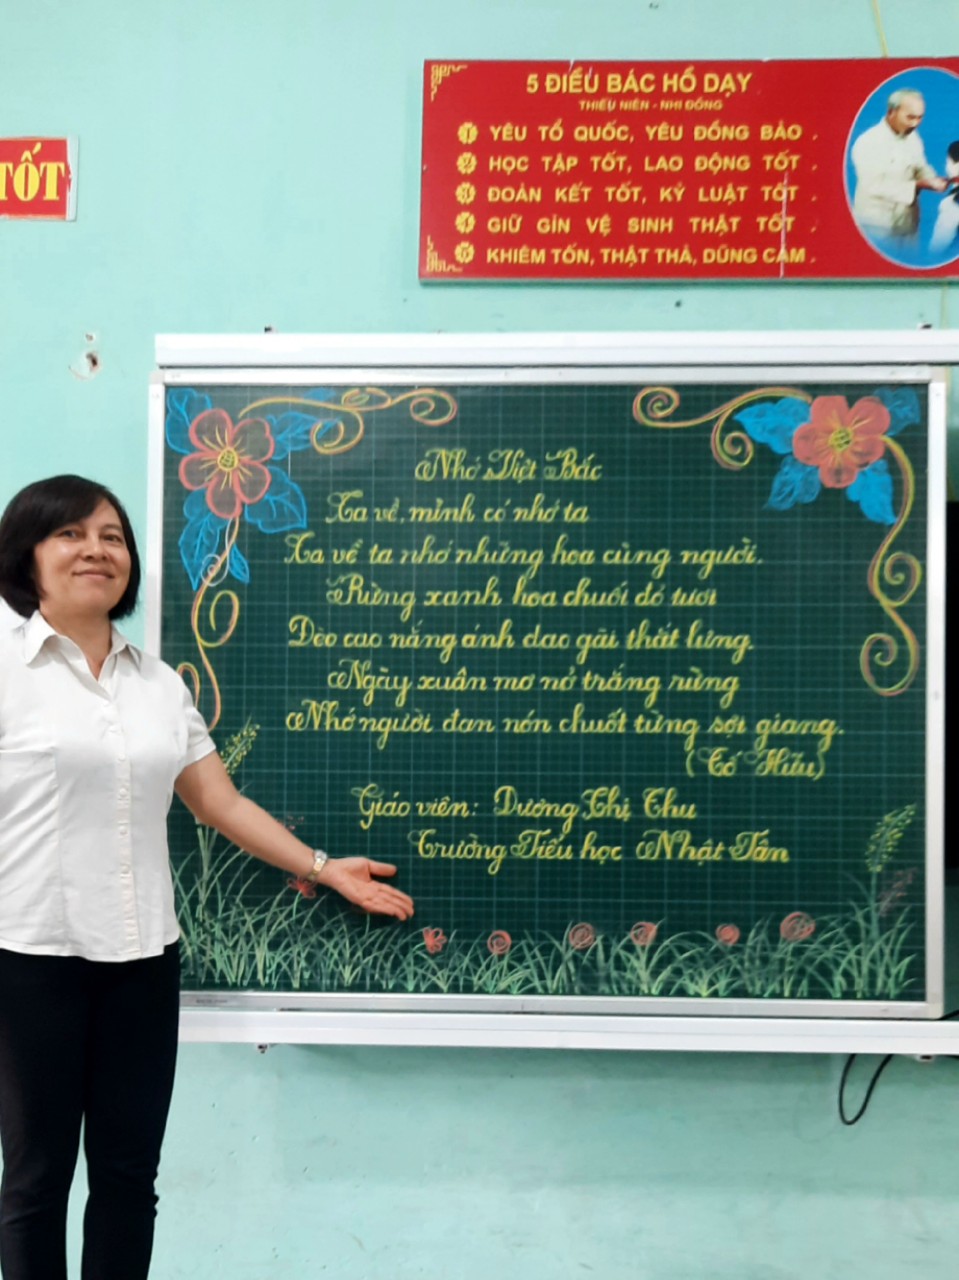 TỐT
5 ĐIỀU BÁC HỒ DẠY
THIẾU NIÊN - NHI ĐỒNG
1 YÊU TỔ QUỐC, YÊU ĐỒNG BÀO .
2 HỌC TẬP TỐT, LAO ĐỘNG TỐT .
3 ĐOÀN KẾT TỐT, KỶ LUẬT TỐT .
4 GIỮ GÌN VỆ SINH THẬT TỐT .
5 KHIÊM TỐN, THẬT THÀ, DŨNG CẢM .
Nhớ Việt Bắc
Ta về, mình có nhớ ta
Ta về ta nhớ những hoa cùng người.
Rừng xanh hoa chuối đỏ tươi
Đèo cao nắng ánh dao gài thắt lưng.
Ngày xuân mơ nở trắng rừng
Nhớ người đan nón chuốt từng sợi giang.
(Tố Hữu)
Giáo viên: Dương Thị Thu
Trường Tiểu học Nhật Tân